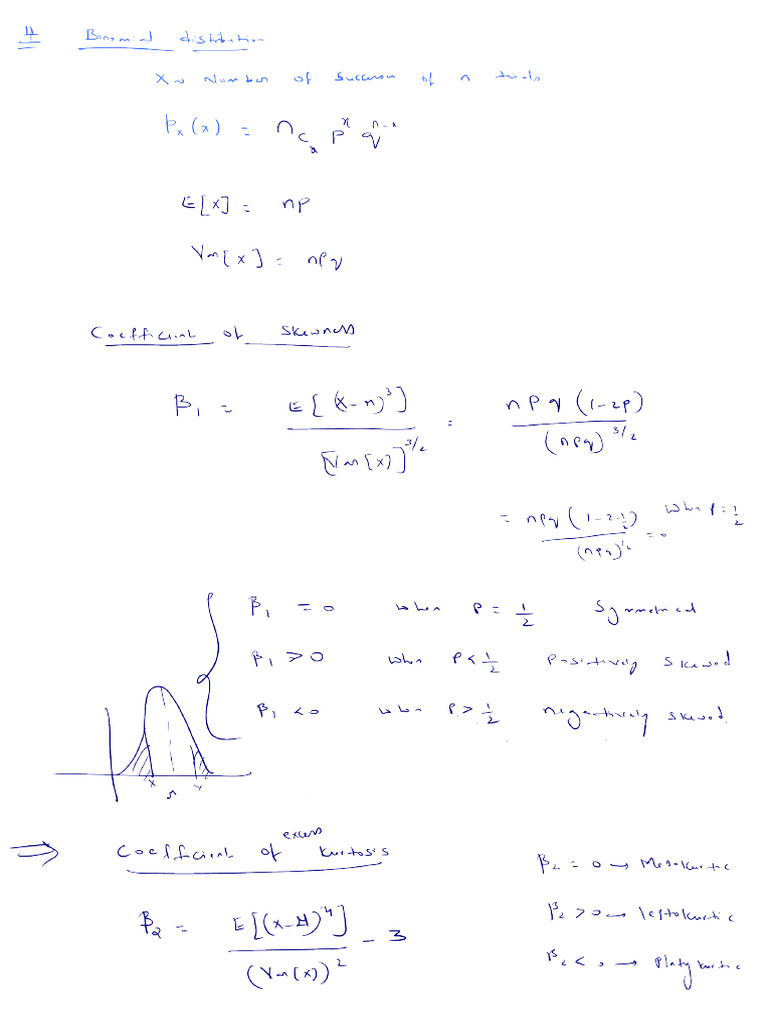 4 Binomial distribution
X ~ Number of Success of n trials
p_x(x) = n_{C_x} p^x q^{n-x}
E[X] = np
Var[X] = npq
Coefficient of Skewness
β_1 = E[(X-μ)^3] / [Var[X]]^{3/2} = npq(1-2p) / (npq)^{3/2}
= npq(1-2·1/2) / (npq)^{1/2} = 0 when p = 1/2
β_1 = 0 when p = 1/2 Symmetrical
β_1 > 0 when p < 1/2 Positively Skewed
β_1 < 0 when p > 1/2 negatively skewed.
X μ Y
⇒ Coefficient of excess kurtosis
β_2 = E[(X-μ)^4] / (Var[X])^2 - 3
β_2 = 0 → Mesokurtic
β_2 > 0 → leptokurtic
β_2 < 0 → platykurtic